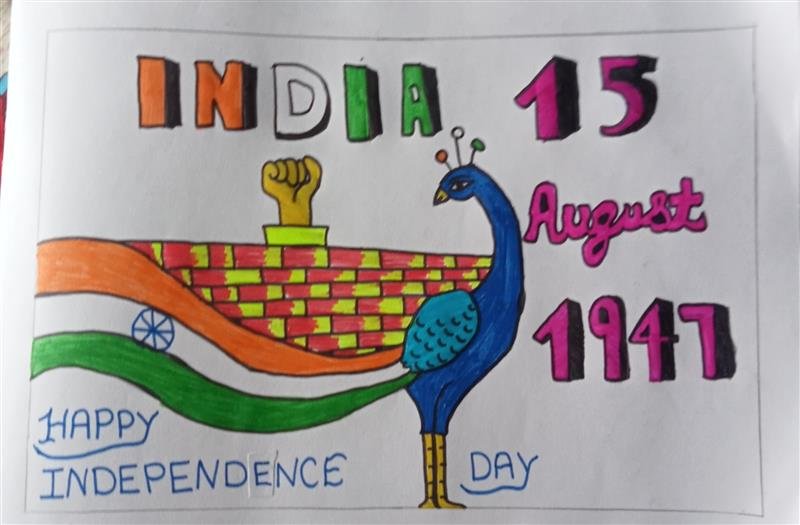 INDIA 15
August
1947
HAPPY
INDEPENDENCE DAY